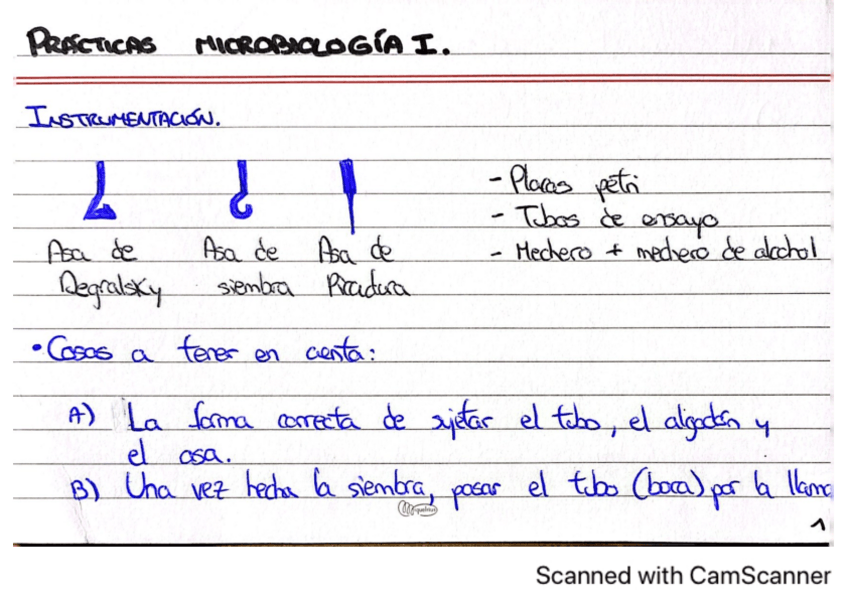 PRÁCTICAS MICROBIOLOGÍA I.
INSTRUMENTACIÓN.
Asa de Degralsky
Asa de siembra
Asa de Picadura
- Placas petri
- Tubos de ensayo
- Mechero + mechero de alcohol
• Cosas a tener en cuenta:
A) La forma correcta de sujetar el tubo, el algodón y
el asa.
B) Una vez hecha la siembra, pasar el tubo (boca) por la llama
1
Scanned with CamScanner